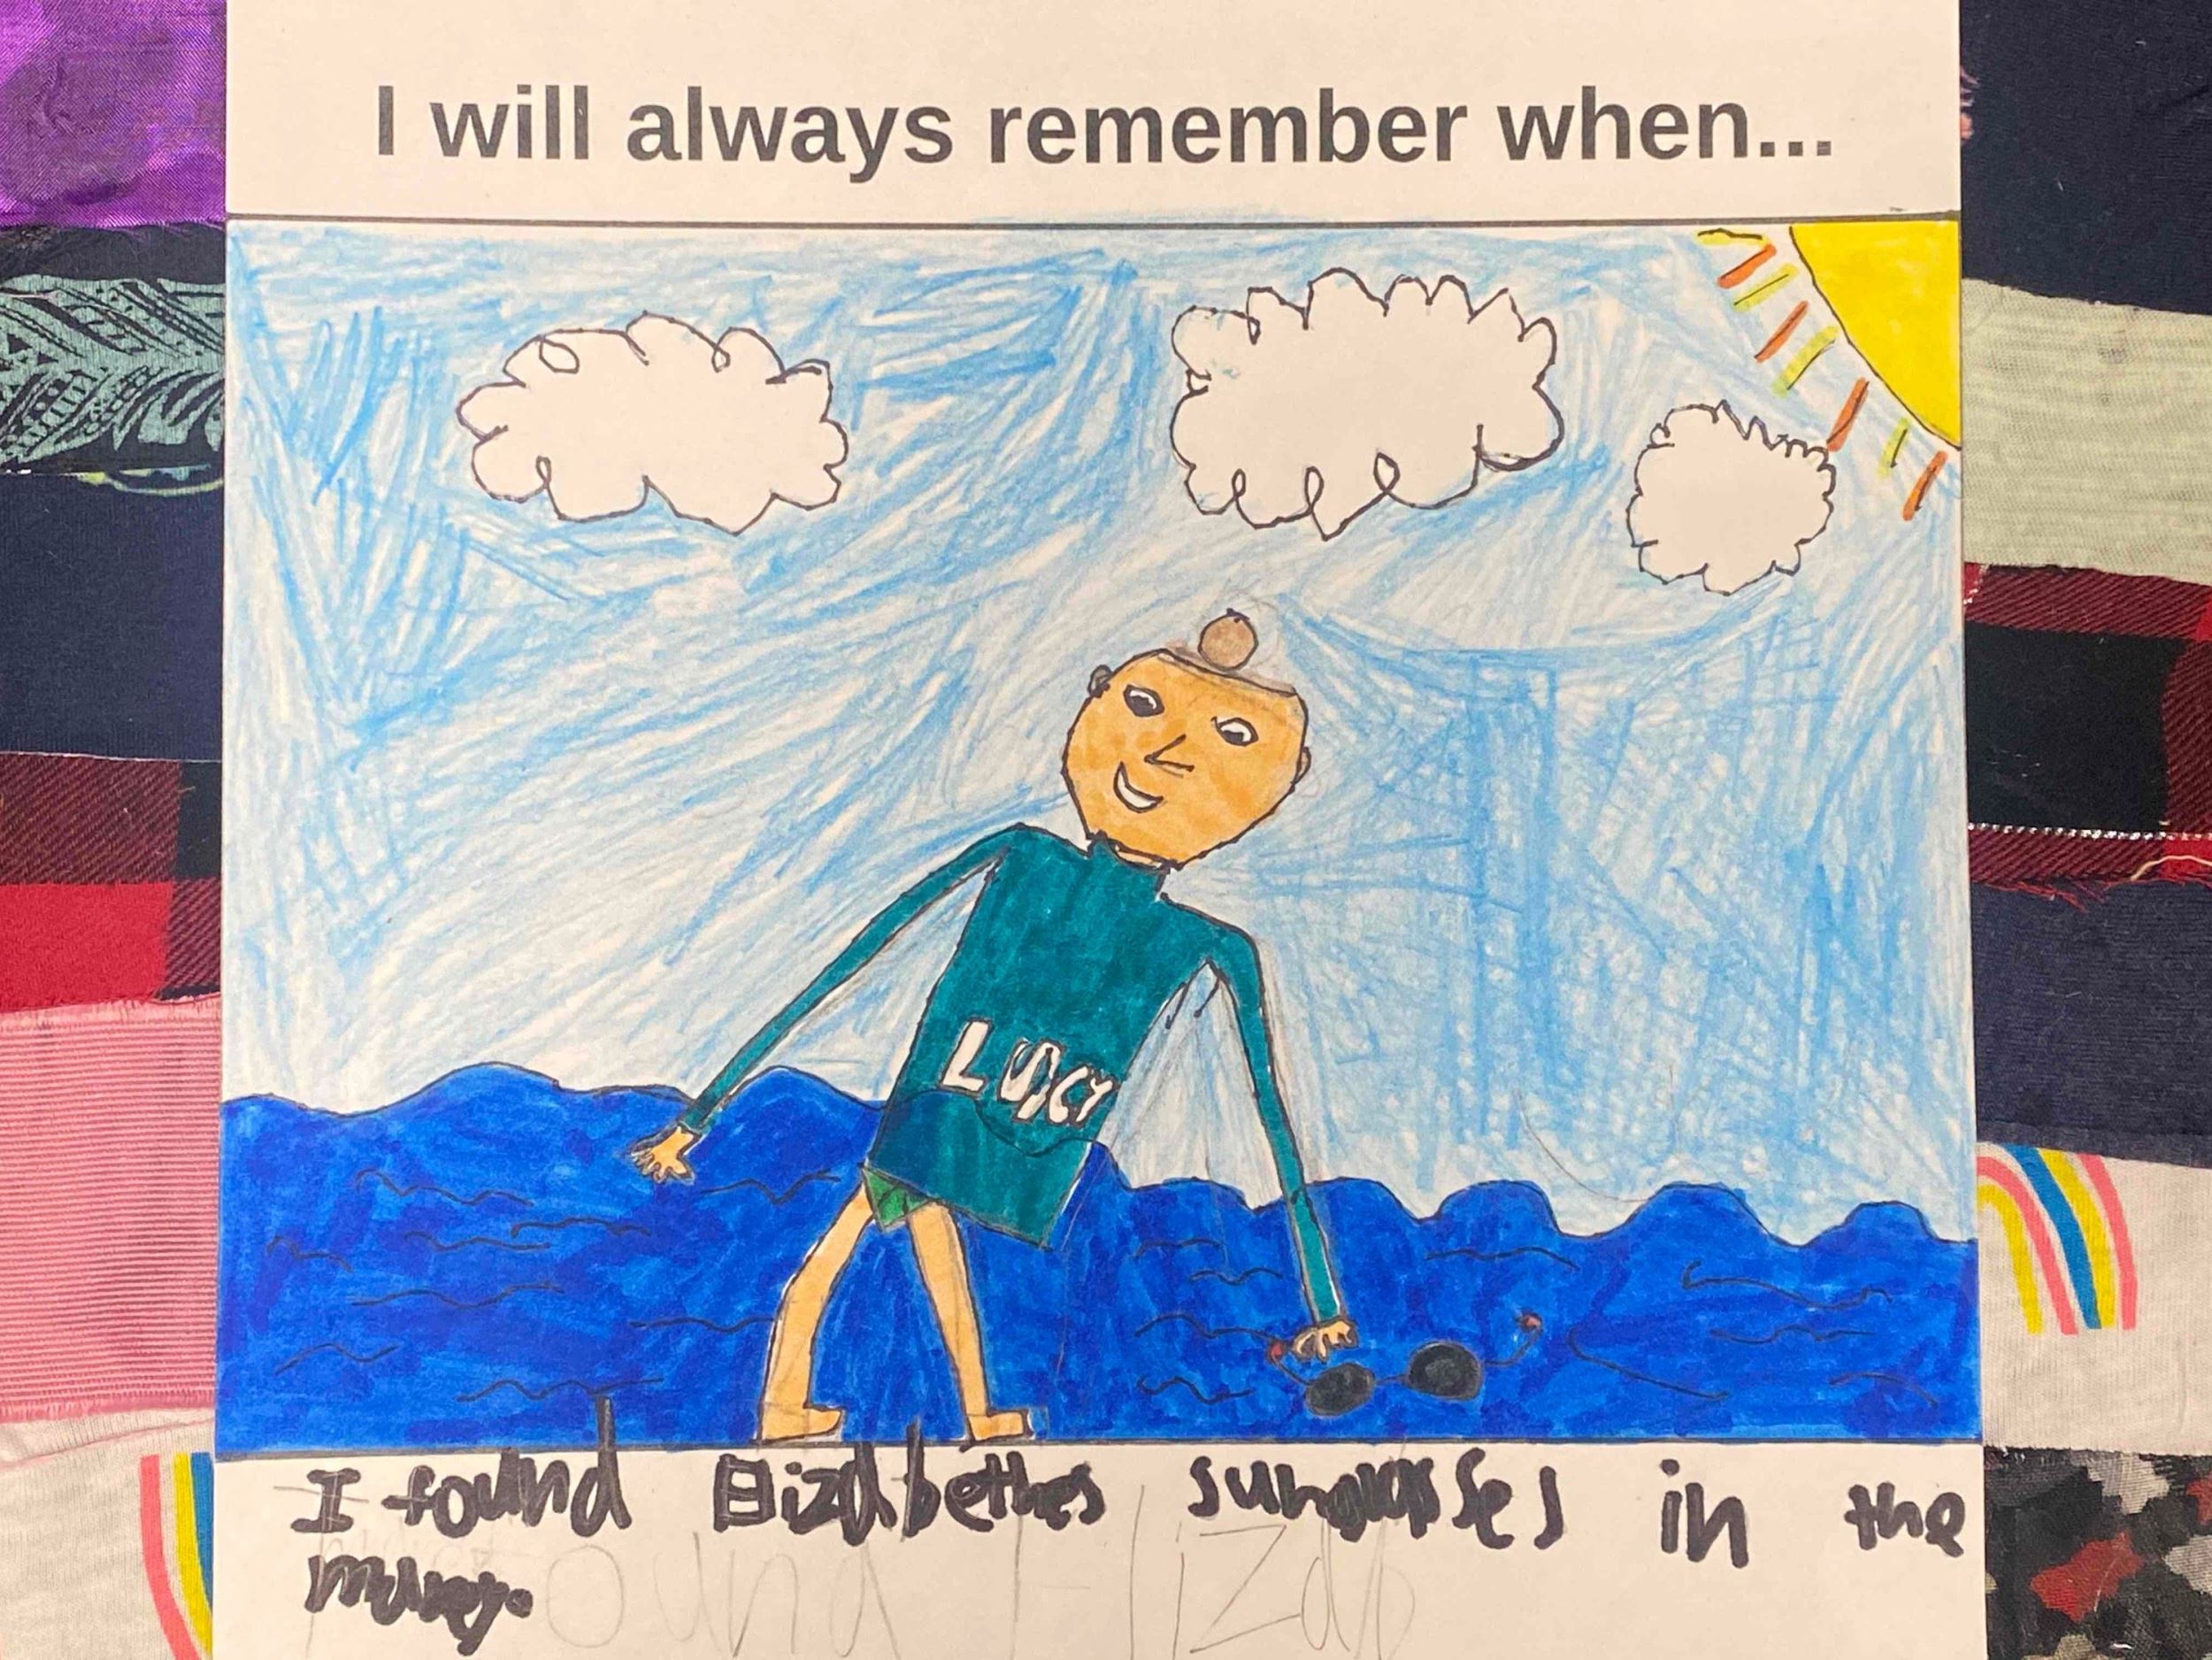 I will always remember when...
LUCY
I found Elizabethes sunglasses in the
ound Elizab